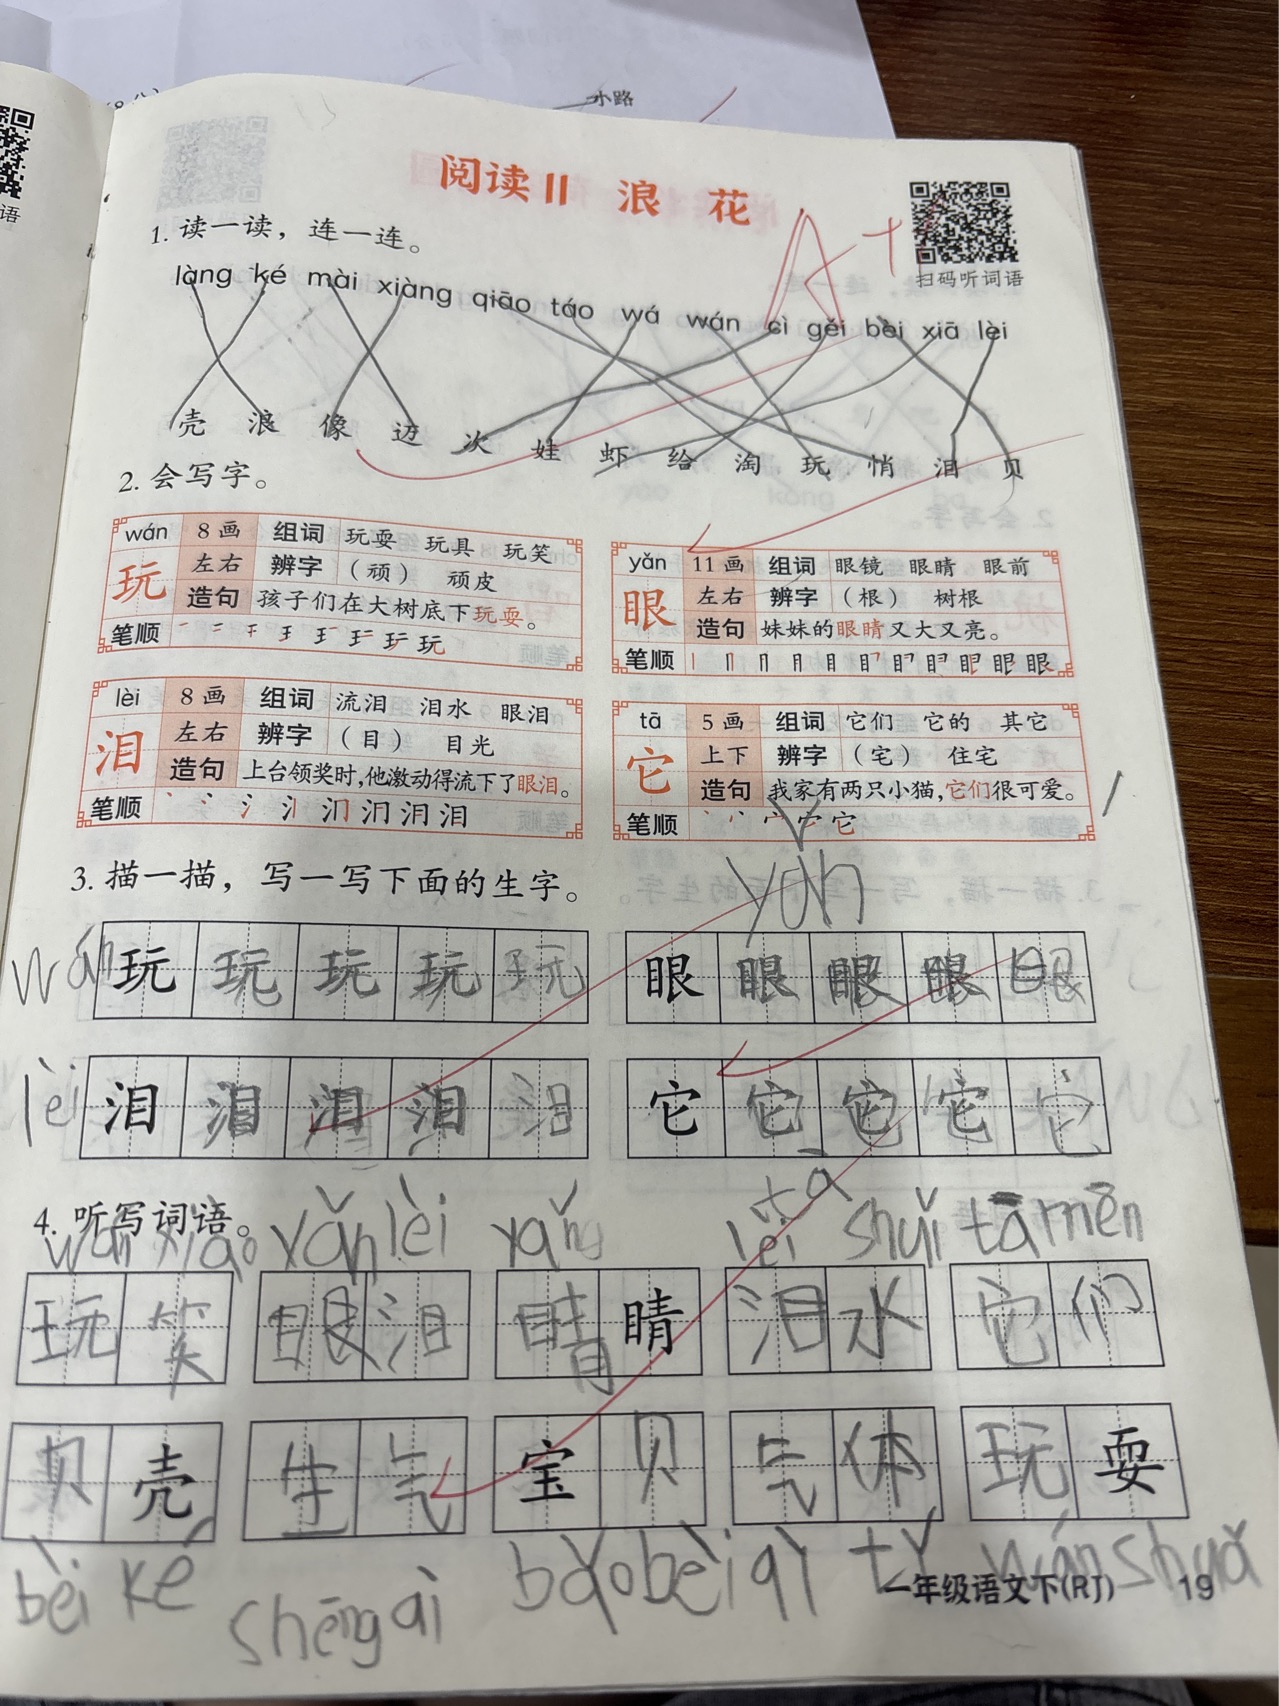 小路
语
阅读II 浪 花
A+
扫码听词语
1. 读一读，连一连。
làng ké mài xiàng qiāo táo wá wán cì gěi bèi xiā lèi
壳 浪 像 迈 次 娃 虾 给 淘 玩 悄 泪 贝
2. 会写字。
wán 8画 组词 玩耍 玩具 玩笑
玩 左右 辨字 （顽） 顽皮
造句 孩子们在大树底下玩耍。
笔顺
lèi 8画 组词 流泪 泪水 眼泪
泪 左右 辨字 （目） 目光
造句 上台领奖时，他激动得流下了眼泪。
笔顺
yǎn 11画 组词 眼镜 眼睛 眼前
眼 左右 辨字 （根） 树根
造句 妹妹的眼睛又大又亮。
笔顺
tā 5画 组词 它们 它的 其它
它 上下 辨字 （宅） 住宅
造句 我家有两只小猫，它们很可爱。
笔顺
3. 描一描，写一写下面的生字。
yǎn
wán 玩 玩 玩 玩 玩 眼 眼 眼 眼 眼
lèi 泪 泪 泪 泪 泪 它 它 它 它 它
tā
4. 听写词语。
wán xiào yǎn lèi lèi shuǐ tā mēn
玩笑 眼泪 睛睛 泪水 它们
贝壳 生气 宝贝 气体 玩耍
bèi ké shēng qì bǎo bèi qì tǐ wán shuǎ
一年级语文下(RJ) 19